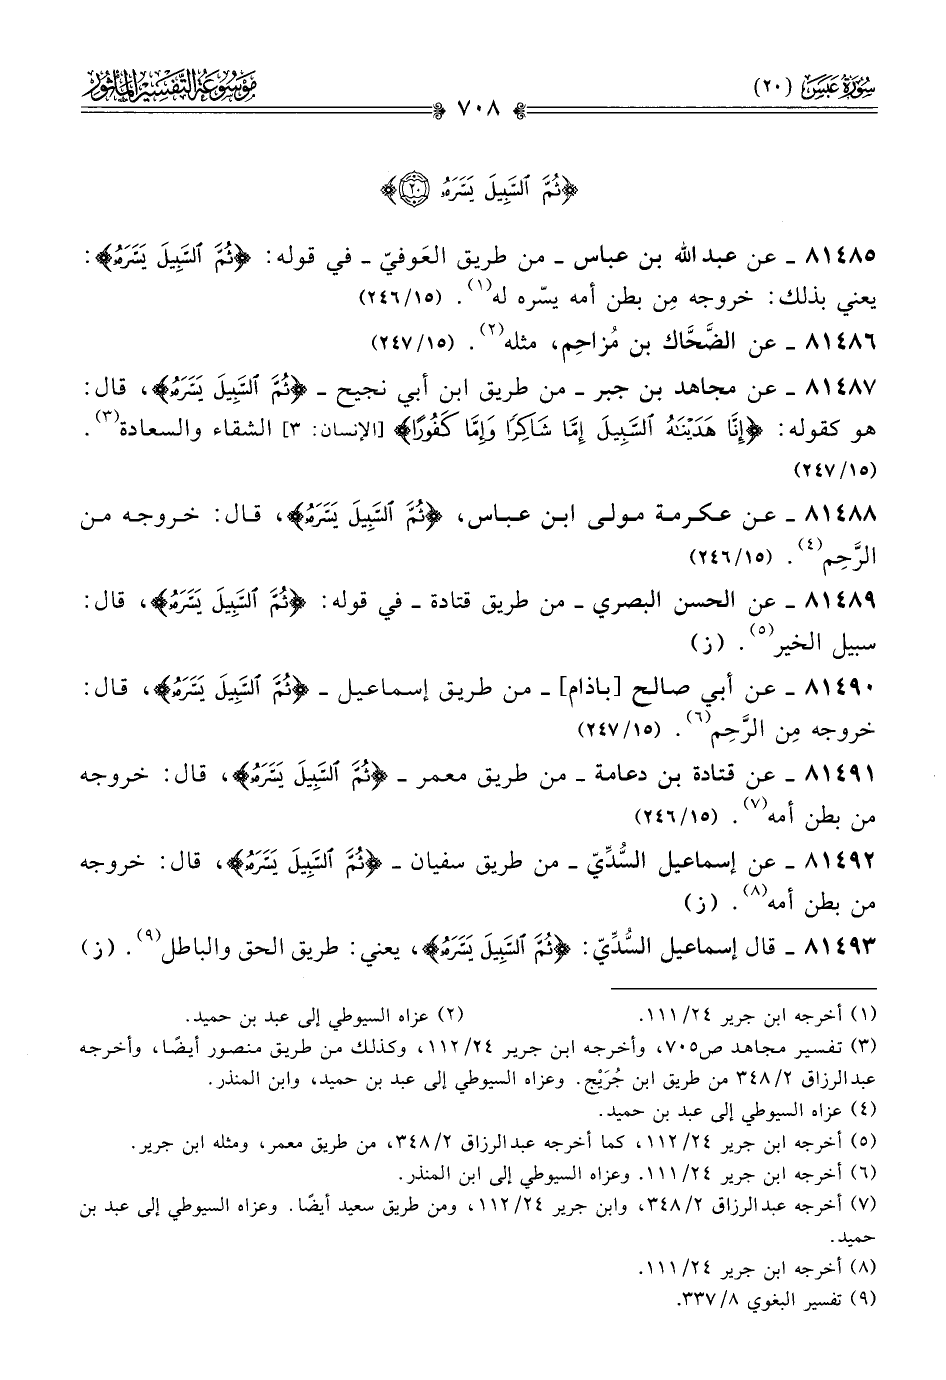 سُورَةُ عَبَسَ (٢٠)
مَوْسُوعَةُ التَّفْسِيرِ المَأْثُورِ
٧٠٨
﴿ثُمَّ ٱلسَّبِيلَ يَسَّرَهُۥ ٢٠﴾
٨١٤٨٥ ـ عن عبد الله بن عباس ـ من طريق العَوفيّ ـ في قوله: ﴿ثُمَّ ٱلسَّبِيلَ يَسَّرَهُۥ﴾:
يعني بذلك: خروجه مِن بطن أمه يسّره له(١). (١٥/ ٢٤٦)
٨١٤٨٦ ـ عن الضَّحَّاك بن مُزاحِم، مثله(٢). (١٥/ ٢٤٧)
٨١٤٨٧ ـ عن مجاهد بن جبر ـ من طريق ابن أبي نجيح ـ ﴿ثُمَّ ٱلسَّبِيلَ يَسَّرَهُۥ﴾، قال:
هو كقوله: ﴿إِنَّا هَدَيْنَٰهُ ٱلسَّبِيلَ إِمَّا شَاكِرًا وَإِمَّا كَفُورًا﴾ [الإنسان: ٣] الشقاء والسعادة(٣).
(١٥/ ٢٤٧)
٨١٤٨٨ ـ عن عكرمة مولى ابن عباس، ﴿ثُمَّ ٱلسَّبِيلَ يَسَّرَهُۥ﴾، قال: خروجه من
الرَّحِم(٤). (١٥/ ٢٤٦)
٨١٤٨٩ ـ عن الحسن البصري ـ من طريق قتادة ـ في قوله: ﴿ثُمَّ ٱلسَّبِيلَ يَسَّرَهُۥ﴾، قال:
سبيل الخير(٥). (ز)
٨١٤٩٠ ـ عن أبي صالح [باذام] ـ من طريق إسماعيل ـ ﴿ثُمَّ ٱلسَّبِيلَ يَسَّرَهُۥ﴾، قال:
خروجه مِن الرَّحِم(٦). (١٥/ ٢٤٧)
٨١٤٩١ ـ عن قتادة بن دعامة ـ من طريق معمر ـ ﴿ثُمَّ ٱلسَّبِيلَ يَسَّرَهُۥ﴾، قال: خروجه
من بطن أمه(٧). (١٥/ ٢٤٦)
٨١٤٩٢ ـ عن إسماعيل السُّدِّيّ ـ من طريق سفيان ـ ﴿ثُمَّ ٱلسَّبِيلَ يَسَّرَهُۥ﴾، قال: خروجه
من بطن أمه(٨). (ز)
٨١٤٩٣ ـ قال إسماعيل السُّدِّيّ: ﴿ثُمَّ ٱلسَّبِيلَ يَسَّرَهُۥ﴾، يعني: طريق الحق والباطل(٩). (ز)
(١) أخرجه ابن جرير ٢٤/ ١١١. (٢) عزاه السيوطي إلى عبد بن حميد.
(٣) تفسير مجاهد ص٧٠٥، وأخرجه ابن جرير ٢٤/ ١١٢، وكذلك من طريق منصور أيضًا، وأخرجه
عبد الرزاق ٢/ ٣٤٨ من طريق ابن جُرَيْج. وعزاه السيوطي إلى عبد بن حميد، وابن المنذر.
(٤) عزاه السيوطي إلى عبد بن حميد.
(٥) أخرجه ابن جرير ٢٤/ ١١٢، كما أخرجه عبد الرزاق ٢/ ٣٤٨، من طريق معمر، ومثله ابن جرير.
(٦) أخرجه ابن جرير ٢٤/ ١١١. وعزاه السيوطي إلى ابن المنذر.
(٧) أخرجه عبد الرزاق ٢/ ٣٤٨، وابن جرير ٢٤/ ١١٢، ومن طريق سعيد أيضًا. وعزاه السيوطي إلى عبد بن
حميد.
(٨) أخرجه ابن جرير ٢٤/ ١١١.
(٩) تفسير البغوي ٨/ ٣٣٧.